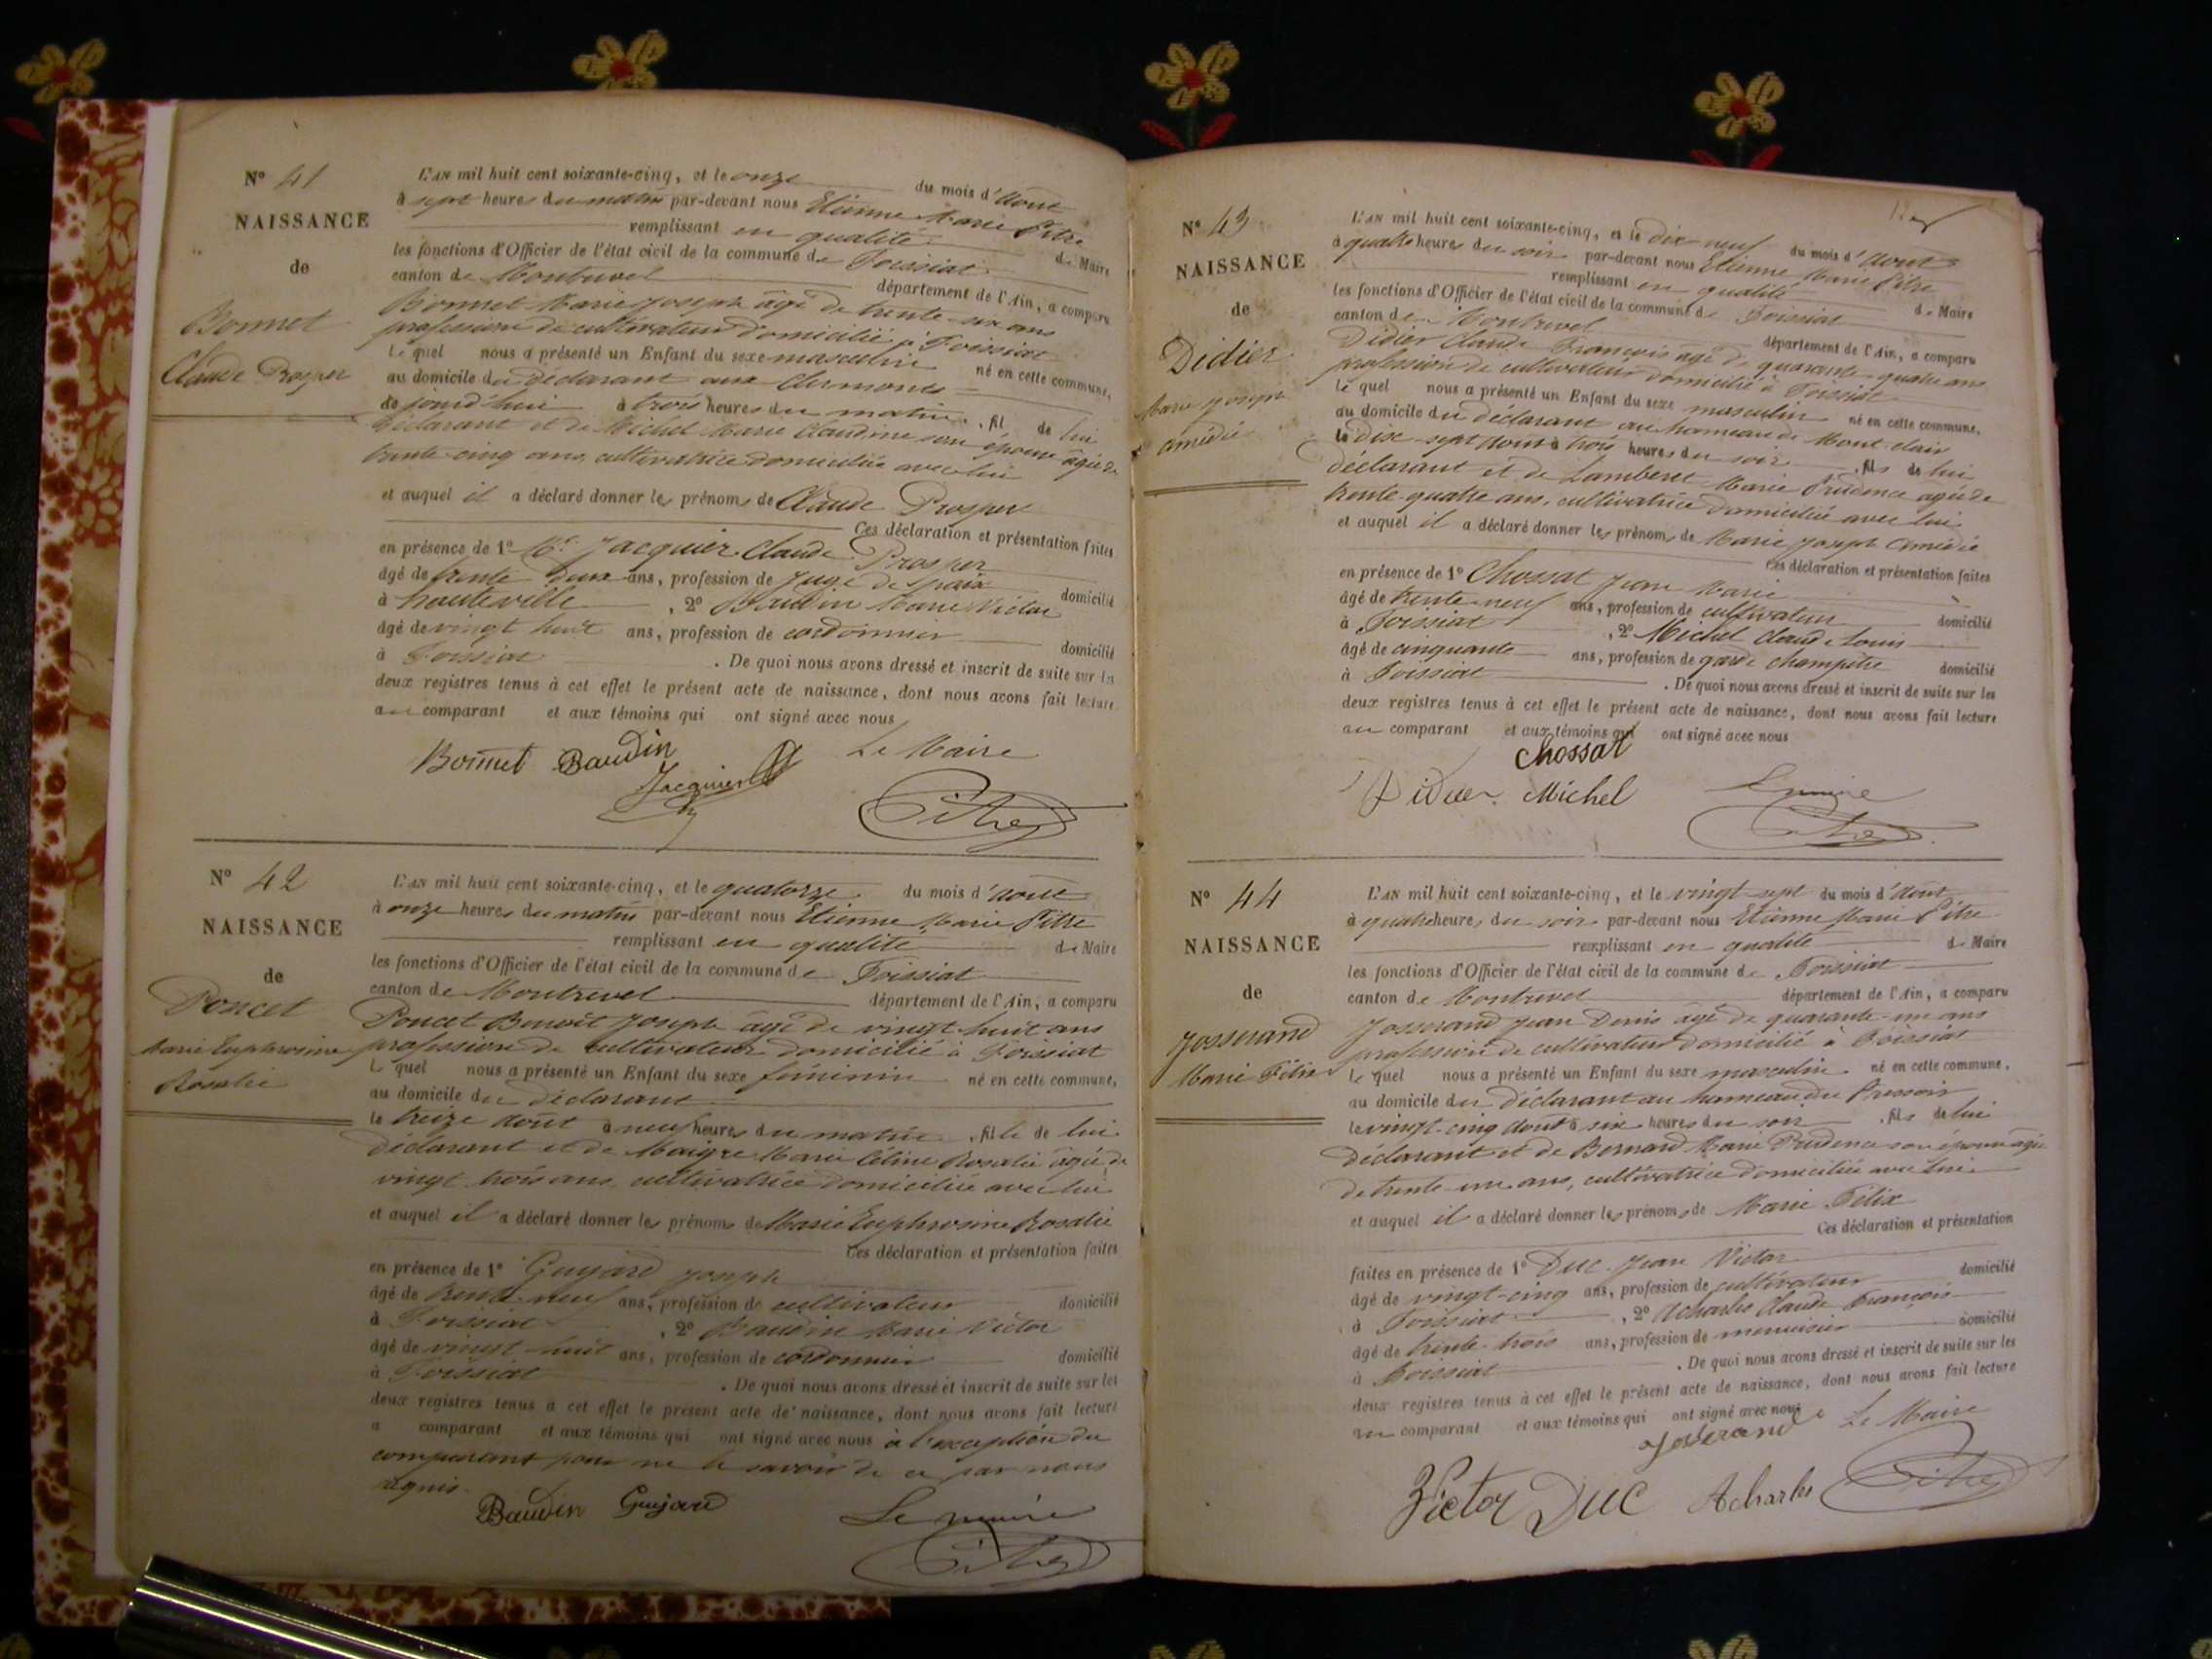 N° 41
NAISSANCE
de
Bonnet
Claude Prosper
L'AN mil huit cent soixante-cinq, et le onze du mois d'Aout
à sept heures du matin par-devant nous Etienne Marie Pitre
remplissant en qualité de Maire
les fonctions d'Officier de l'état civil de la commune de Foissiat
canton de Montrevel département de l'Ain, a comparu
Bonnet Marie Joseph âgé de trente-six ans
profession de cultivateur domicilié à Foissiat
lequel nous a présenté un Enfant du sexe masculin né en cette commune,
au domicile du déclarant aux Clermonts
de jourd'hui à trois heures du matin, fil de lui
déclarant et de Michel Marie Claudine son épouse âgée de
trente-cinq ans, cultivatrice domiciliée avec lui
et auquel il a déclaré donner les prénoms de Claude Prosper
Ces déclaration et présentation faites
en présence de 1° Mr Jacquier Claude Prosper
âgé de trente deux ans, profession de Juge de paix domicilié
à hauteville, 2° Baudin Marie Victor
âgé de vingt huit ans, profession de cordonnier domicilié
à Foissiat. De quoi nous avons dressé et inscrit de suite sur les
deux registres tenus à cet effet le présent acte de naissance, dont nous avons fait lecture
au comparant et aux témoins qui ont signé avec nous
Bonnet Baudin Le Maire
Jacquier
Pitre
N° 42
NAISSANCE
de
Poncet
Marie Euphrosine
Rosalie
L'AN mil huit cent soixante-cinq, et le quatorze du mois d'Aout
à onze heures du matin par-devant nous Etienne Marie Pitre
remplissant en qualité de Maire
les fonctions d'Officier de l'état civil de la commune de Foissiat
canton de Montrevel département de l'Ain, a comparu
Poncet Benoit Joseph âgé de vingt huit ans
profession de cultivateur domicilié à Foissiat
lequel nous a présenté un Enfant du sexe féminin né en cette commune,
au domicile du déclarant
le treize Aout à neuf heures du matin, fille de lui
déclarant et de Maigre Marie Céline Rosalie âgée de
vingt trois ans, cultivatrice domiciliée avec lui
et auquel il a déclaré donner les prénoms de Marie Euphrosine Rosalie
Ces déclaration et présentation faites
en présence de 1° Guyard Joseph
âgé de trente-neuf ans, profession de cultivateur domicilié
à Foissiat, 2° Baudin Marie Victor
âgé de vingt-huit ans, profession de cordonnier domicilié
à Foissiat. De quoi nous avons dressé et inscrit de suite sur les
deux registres tenus à cet effet le présent acte de naissance, dont nous avons fait lecture
a comparant et aux témoins qui ont signé avec nous à l'exception du
comparant pour ne le savoir de ce par nous
requis.
Baudin Guyard Le maire
Pitre
N° 43
NAISSANCE
de
Didier
Marie Joseph
Amédée
L'AN mil huit cent soixante-cinq, et le dix-neuf du mois d'Aout
à quatre heures du soir par-devant nous Etienne Marie Pitre
remplissant en qualité de Maire
les fonctions d'Officier de l'état civil de la commune de Foissiat
canton de Montrevel département de l'Ain, a comparu
Didier Claude François âgé de quarante-quatre ans
profession de cultivateur domicilié à Foissiat
lequel nous a présenté un Enfant du sexe masculin né en cette commune,
au domicile du déclarant au hameau de Mont-clair
le Dix-sept Aout à trois heures du soir, fils de lui
déclarant et de Lamberet Marie Prudence agée de
trente-quatre ans, cultivatrice domiciliée avec lui
et auquel il a déclaré donner les prénoms de Marie Joseph Amédée
Ces déclaration et présentation faites
en présence de 1° Chossat Jean Marie
âgé de trente-neuf ans, profession de cultivateur domicilié
à Foissiat, 2° Michel Claude Louis
âgé de cinquante ans, profession de garde champêtre domicilié
à Foissiat. De quoi nous avons dressé et inscrit de suite sur les
deux registres tenus à cet effet le présent acte de naissance, dont nous avons fait lecture
au comparant et aux témoins qui ont signé avec nous
Chossat
Didier Michel Le maire
Pitre
N° 44
NAISSANCE
de
Josserand
Marie Félix
L'AN mil huit cent soixante-cinq, et le vingt-sept du mois d'Aout
à quatre heures du soir par-devant nous Etienne Marie Pitre
remplissant en qualité de Maire
les fonctions d'Officier de l'état civil de la commune de Foissiat
canton de Montrevel département de l'Ain, a comparu
Josserand Jean Denis âgé de quarante-un ans
profession de cultivateur domicilié à Foissiat
lequel nous a présenté un Enfant du sexe masculin né en cette commune,
au domicile du déclarant au hameau du Pressoir
le vingt-cinq Aout à six heures du soir, fils de lui
déclarant et de Bernard Marie Prudence son épouse âgée
de trente-un ans, cultivatrice domiciliée avec lui
et auquel il a déclaré donner les prénoms de Marie Félix
Ces déclaration et présentation
faites en présence de 1° Duc Jean Victor
âgé de vingt-cinq ans, profession de cultivateur domicilié
à Foissiat, 2° Acharles Claude François
âgé de trente-trois ans, profession de menuisier domicilié
à Foissiat. De quoi nous avons dressé et inscrit de suite sur les
deux registres tenus à cet effet le présent acte de naissance, dont nous avons fait lecture
au comparant et aux témoins qui ont signé avec nous
Josserand Le Maire
Victor DUC Acharles Pitre